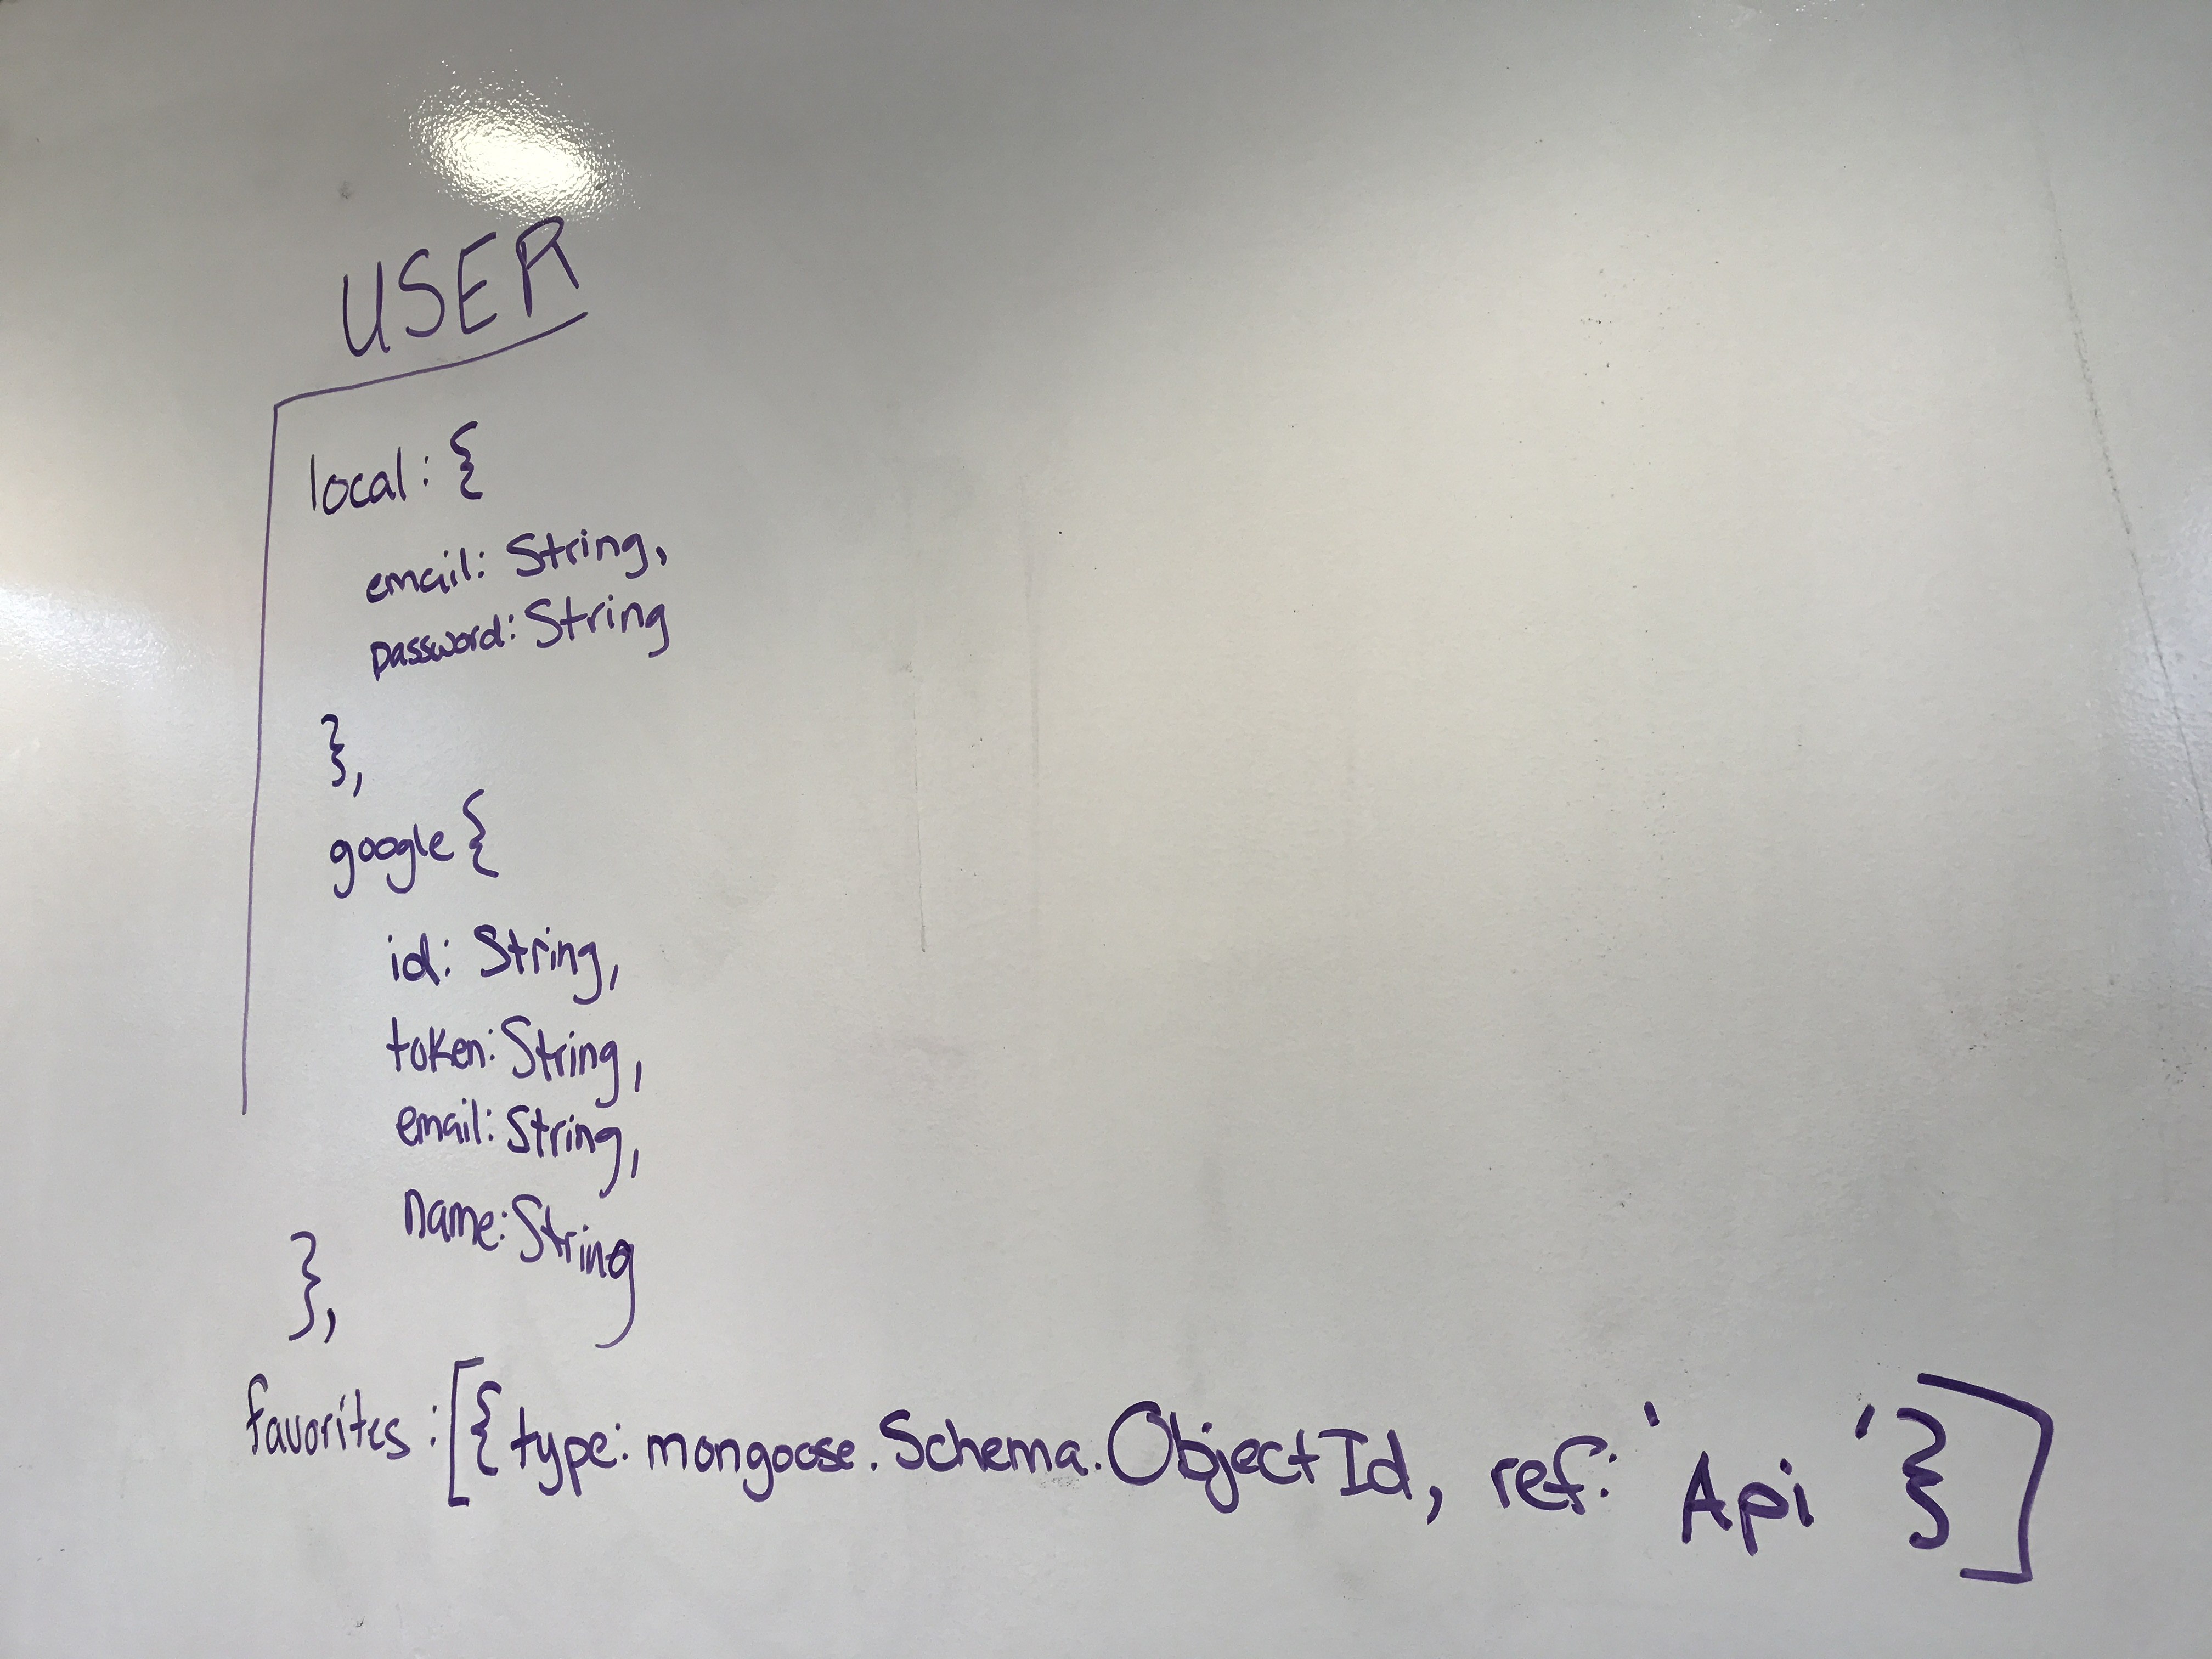 USER
local: {
email: String,
password: String
},
google {
id: String,
token: String,
email: String,
name: String
},
favorites: [{type: mongoose.Schema.ObjectId, ref: 'Api'}]